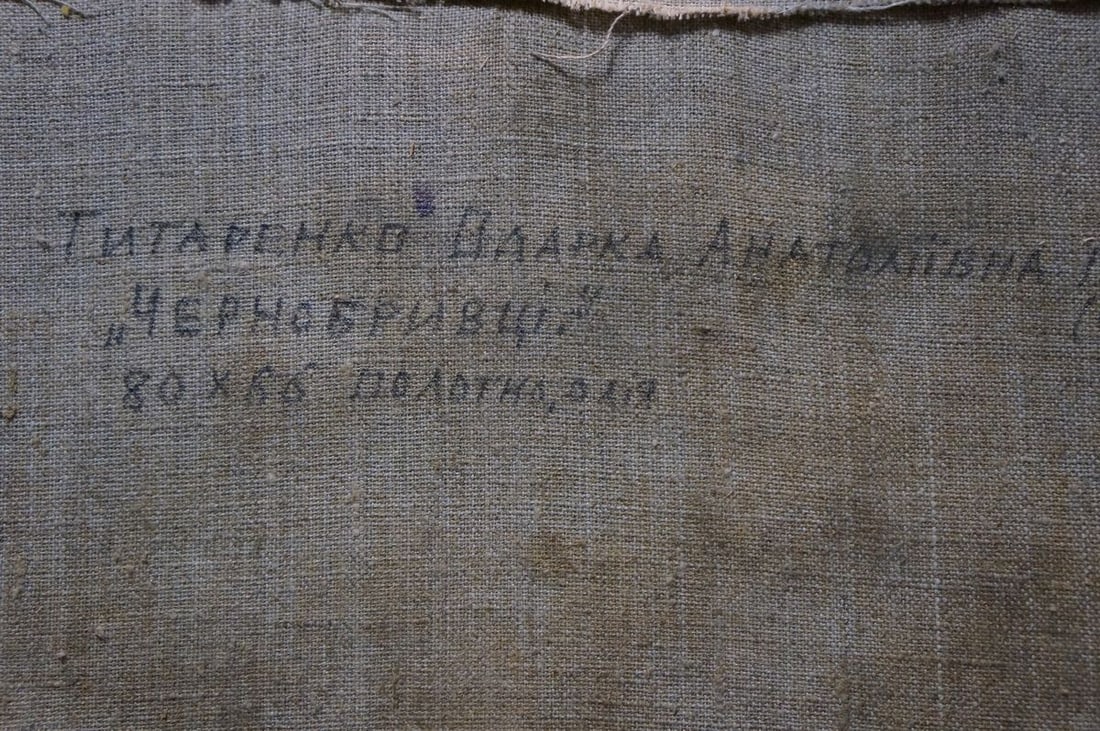 ТИТАРЕНКО ОДАРКА АНАТОЛІЇВНА
„ЧЕРНОБРИВЦІ"
80 X 66 ПОЛОТНО, ОЛІЯ